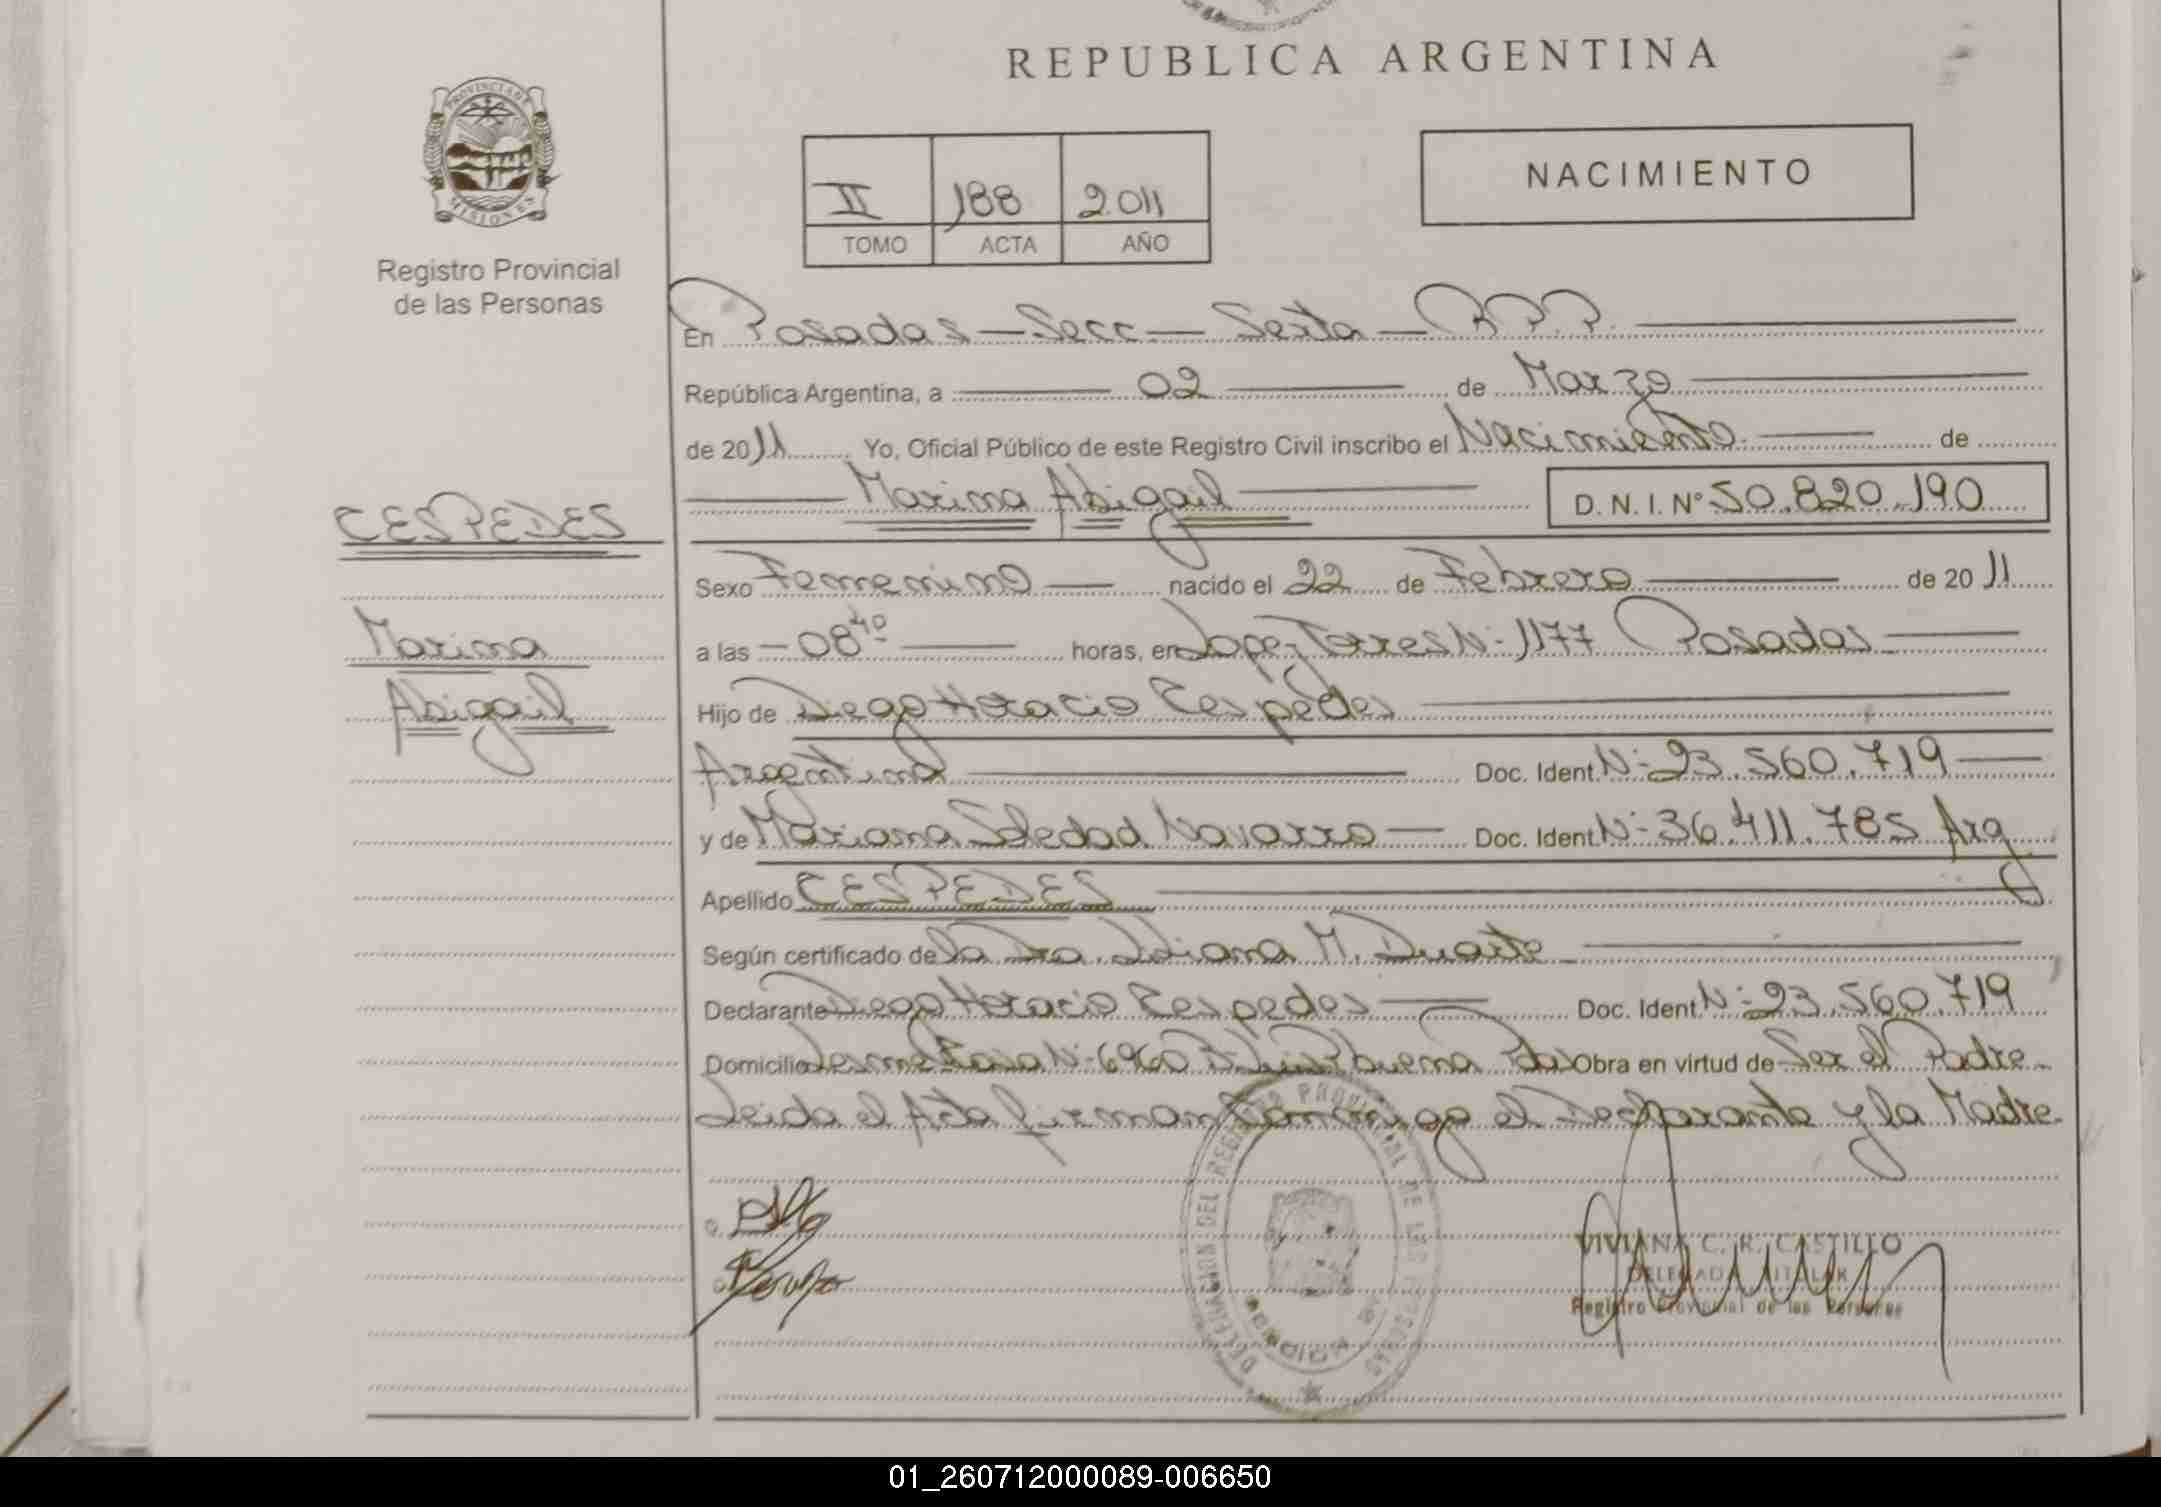 REPUBLICA ARGENTINA
PROVINCIA DE MISIONES
Registro Provincial
de las Personas
NACIMIENTO
II 188 2.011
TOMO ACTA AÑO
En Posadas - Secc - Sexta - R.P.P.
República Argentina, a 02 de Marzo
de 2011 Yo, Oficial Público de este Registro Civil inscribo el Nacimiento de
Marina Abigail D. N. I. N° 50.820.190
CESPEDES
Marina
Abigail
Sexo Femenino nacido el 22 de Febrero de 2011
a las - 08 40 horas, en Lopez Torres N: 1177 Posadas
Hijo de Diego Horacio Cespedes
Argentino Doc. Ident. N: 23.560.719
y de Mariana Soledad Navarro Doc. Ident. N: 36.411.785 Arg
Apellido CESPEDES
Según certificado de la Dra. Liliana M. Duarte
Declarante Diego Horacio Cespedes Doc. Ident. N: 23.560.719
Domicilio N: Pdas Obra en virtud de Ser el Padre
Leida el Acta firman conmigo el Declarante y la Madre.
DELEGACION DEL REGISTRO PROVINCIAL DE LAS PERSONAS
VIVIANA C. R. CASTILLO
DELEGADA TITULAR
Registro Provincial de las Personas
01_260712000089-006650